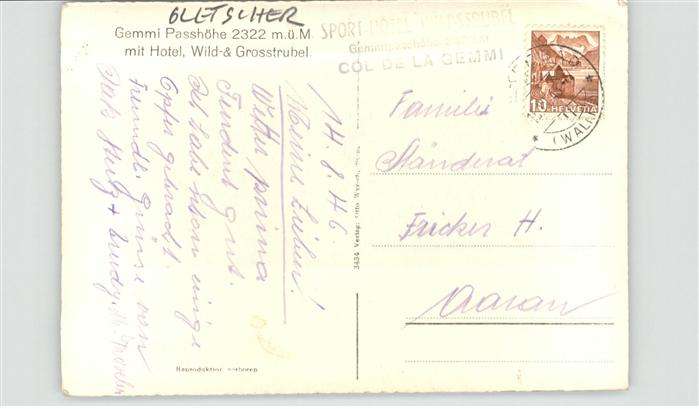 GLETSCHER
Gemmi Passhöhe 2322 m.ü.M
mit Hotel, Wild- & Grosstrubel
SPORT HOTEL WILDSTRUBEL
Gemmipasshöhe
COL DE LA GEMMI
10 HELVETIA
(WALLIS)
14. 8. 46.
Meine Lieben!
Wetter prima
Tendenz gut.
schon einige
Opfer gebracht.
Freundl. Grüsse von
Familie
Ständerat
Fricker H.
Aarau
3434 Verlag: Otto
Reproduktion verboten